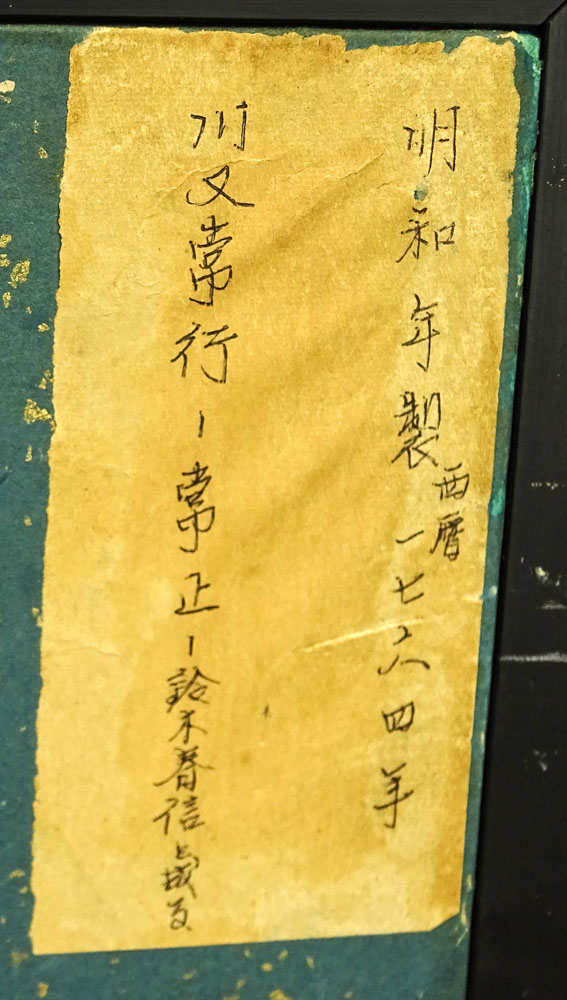 明和年製
西暦
一七六四年
川又常行ー常正ー鈴木春信と成る